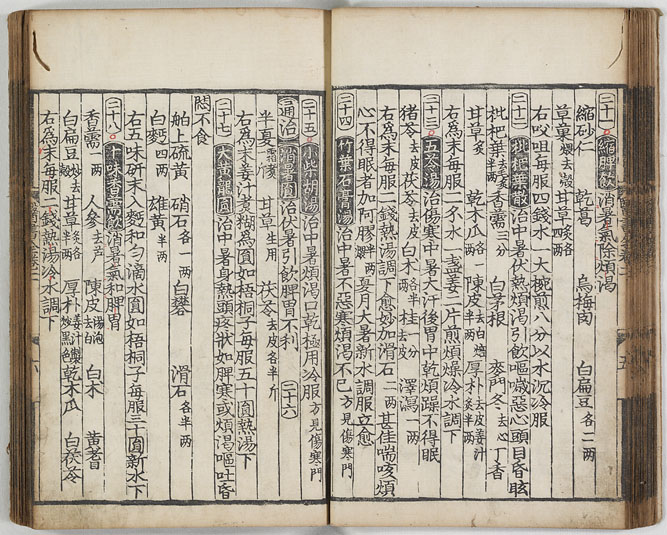 二十一 縮脾飲 消暑氣除煩渴
縮砂仁 乾葛 烏梅肉 白扁豆各二兩
草菓煨去殼 甘草炙各四兩
右㕮咀每服四錢水一大椀煎八分以水沉冷服
二十二 枇杷葉散 治中暑伏熱煩渴引飲嘔噦惡心頭目昏眩
枇杷葉去毛炙半兩 香薷三分 白茅根 麥門冬去心 丁香
甘草炙 乾木瓜各一兩 陳皮去白焙 厚朴去皮姜汁炙各半兩
右為末每服二錢水一盞姜二片煎煩燥冷水調下
二十三 五苓湯 治傷寒中暑大汗後胃中乾煩躁不得眠
豬苓去皮 茯苓去皮 白朮各半兩 桂一分去皮 澤瀉一兩
右為末每服二錢熱湯調下愈妙加滑石二兩甚佳喘咳煩
心不得眠者加阿膠煨半兩夏月大暑新水調服立愈
二十四 竹葉石膏湯 治中暑不惡寒煩渴不已方見傷寒門
二十五 小柴胡湯 治中暑煩渴口乾極用冷服方見傷寒門
通治 消暑圓 治伏暑引飲脾胃不利 二十六
半夏 甘草生用 茯苓去皮各半斤
右為末姜汁煮糊為圓如梧桐子每服五十圓熱湯下
二十七 大黃龍圓 治中暑身熱頭疼狀如脾寒或煩渴嘔吐昏
悶不食
舶上硫黃 硝石各一兩 白礬 滑石各半兩
白麪四兩 雄黃半兩
右五味研末入麪和勻滴水圓如梧桐子每服三十圓新水下
二十八 十味香薷飲 消暑氣和脾胃
香薷一兩 人參去芦 陳皮湯泡去白 白朮 黃耆
白扁豆炒去殼 甘草炙各半兩 厚朴姜汁製炒黑色 乾木瓜 白茯苓
右為末每服二錢熱湯冷水調下